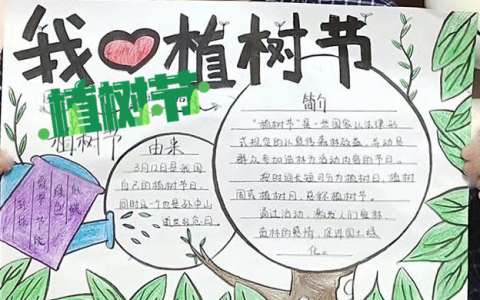 我❤植树节
植树节
植树节
简介
"植树节"是一些国家以法律形
式规定的以宣传森林效益，并动员
群众参加造林为活动内容的节日。
按时间长短可分为植树日、植树
周或植树月，总称植树节。
通过活动，激发人们爱林、
造林的感情，促进国土绿
化。
由来
3月12日是我国
自己的植树节日，
同时这个也是孙中山
逝世纪念日。
绿色